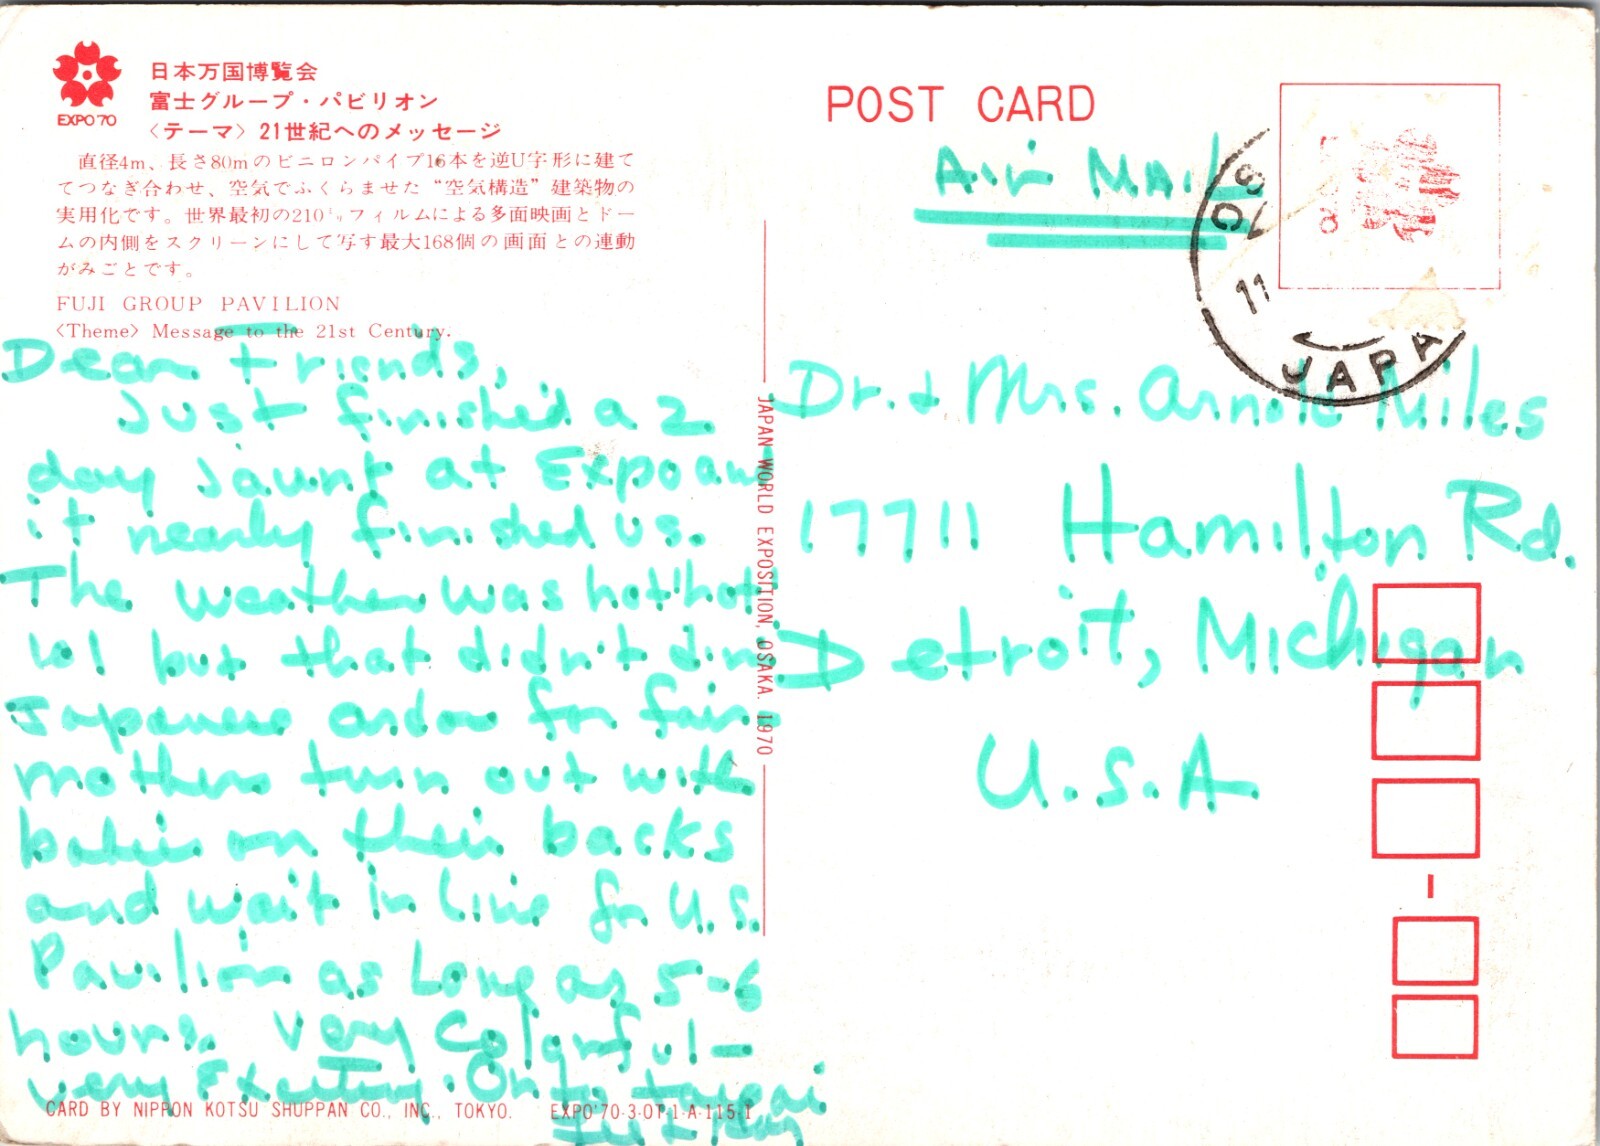 EXPO'70
日本万国博覧会
富士グループ・パビリオン
〈テーマ〉21世紀へのメッセージ
直径4m、長さ80mのビニロンパイプ16本を逆U字形に建て
てつなぎ合わせ、空気でふくらませた“空気構造”建築物の
実用化です。世界最初の210ミリフィルムによる多面映画とドー
ムの内側をスクリーンにして写す最大168個の画面との連動
がみごとです。
FUJI GROUP PAVILION
<Theme> Message to the 21st Century.
Dear Friends,
Just finished a 2
day jaunt at Expo and
it nearly finished us.
The weather was hot! hot!
but that didn't dim
Japanese ardor for fair
mothers turn out with
babies on their backs
and wait in line for U.S.
Pavilion as long as 5-6
hours. Very colorful -
very exciting. On to Taipei
CARD BY NIPPON KOTSU SHUPPAN CO., INC., TOKYO. EXPO'70-3-01-1-A-115-1
JAPAN WORLD EXPOSITION, OSAKA. 1970
POST CARD
Air Mail
10
11
JAPA
Dr. & Mrs. Arnold Miles
17711 Hamilton Rd.
Detroit, Michigan
U.S.A